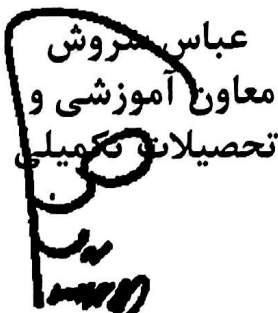 عباس سروش
معاون آموزشی و
تحصیلات تکمیلی